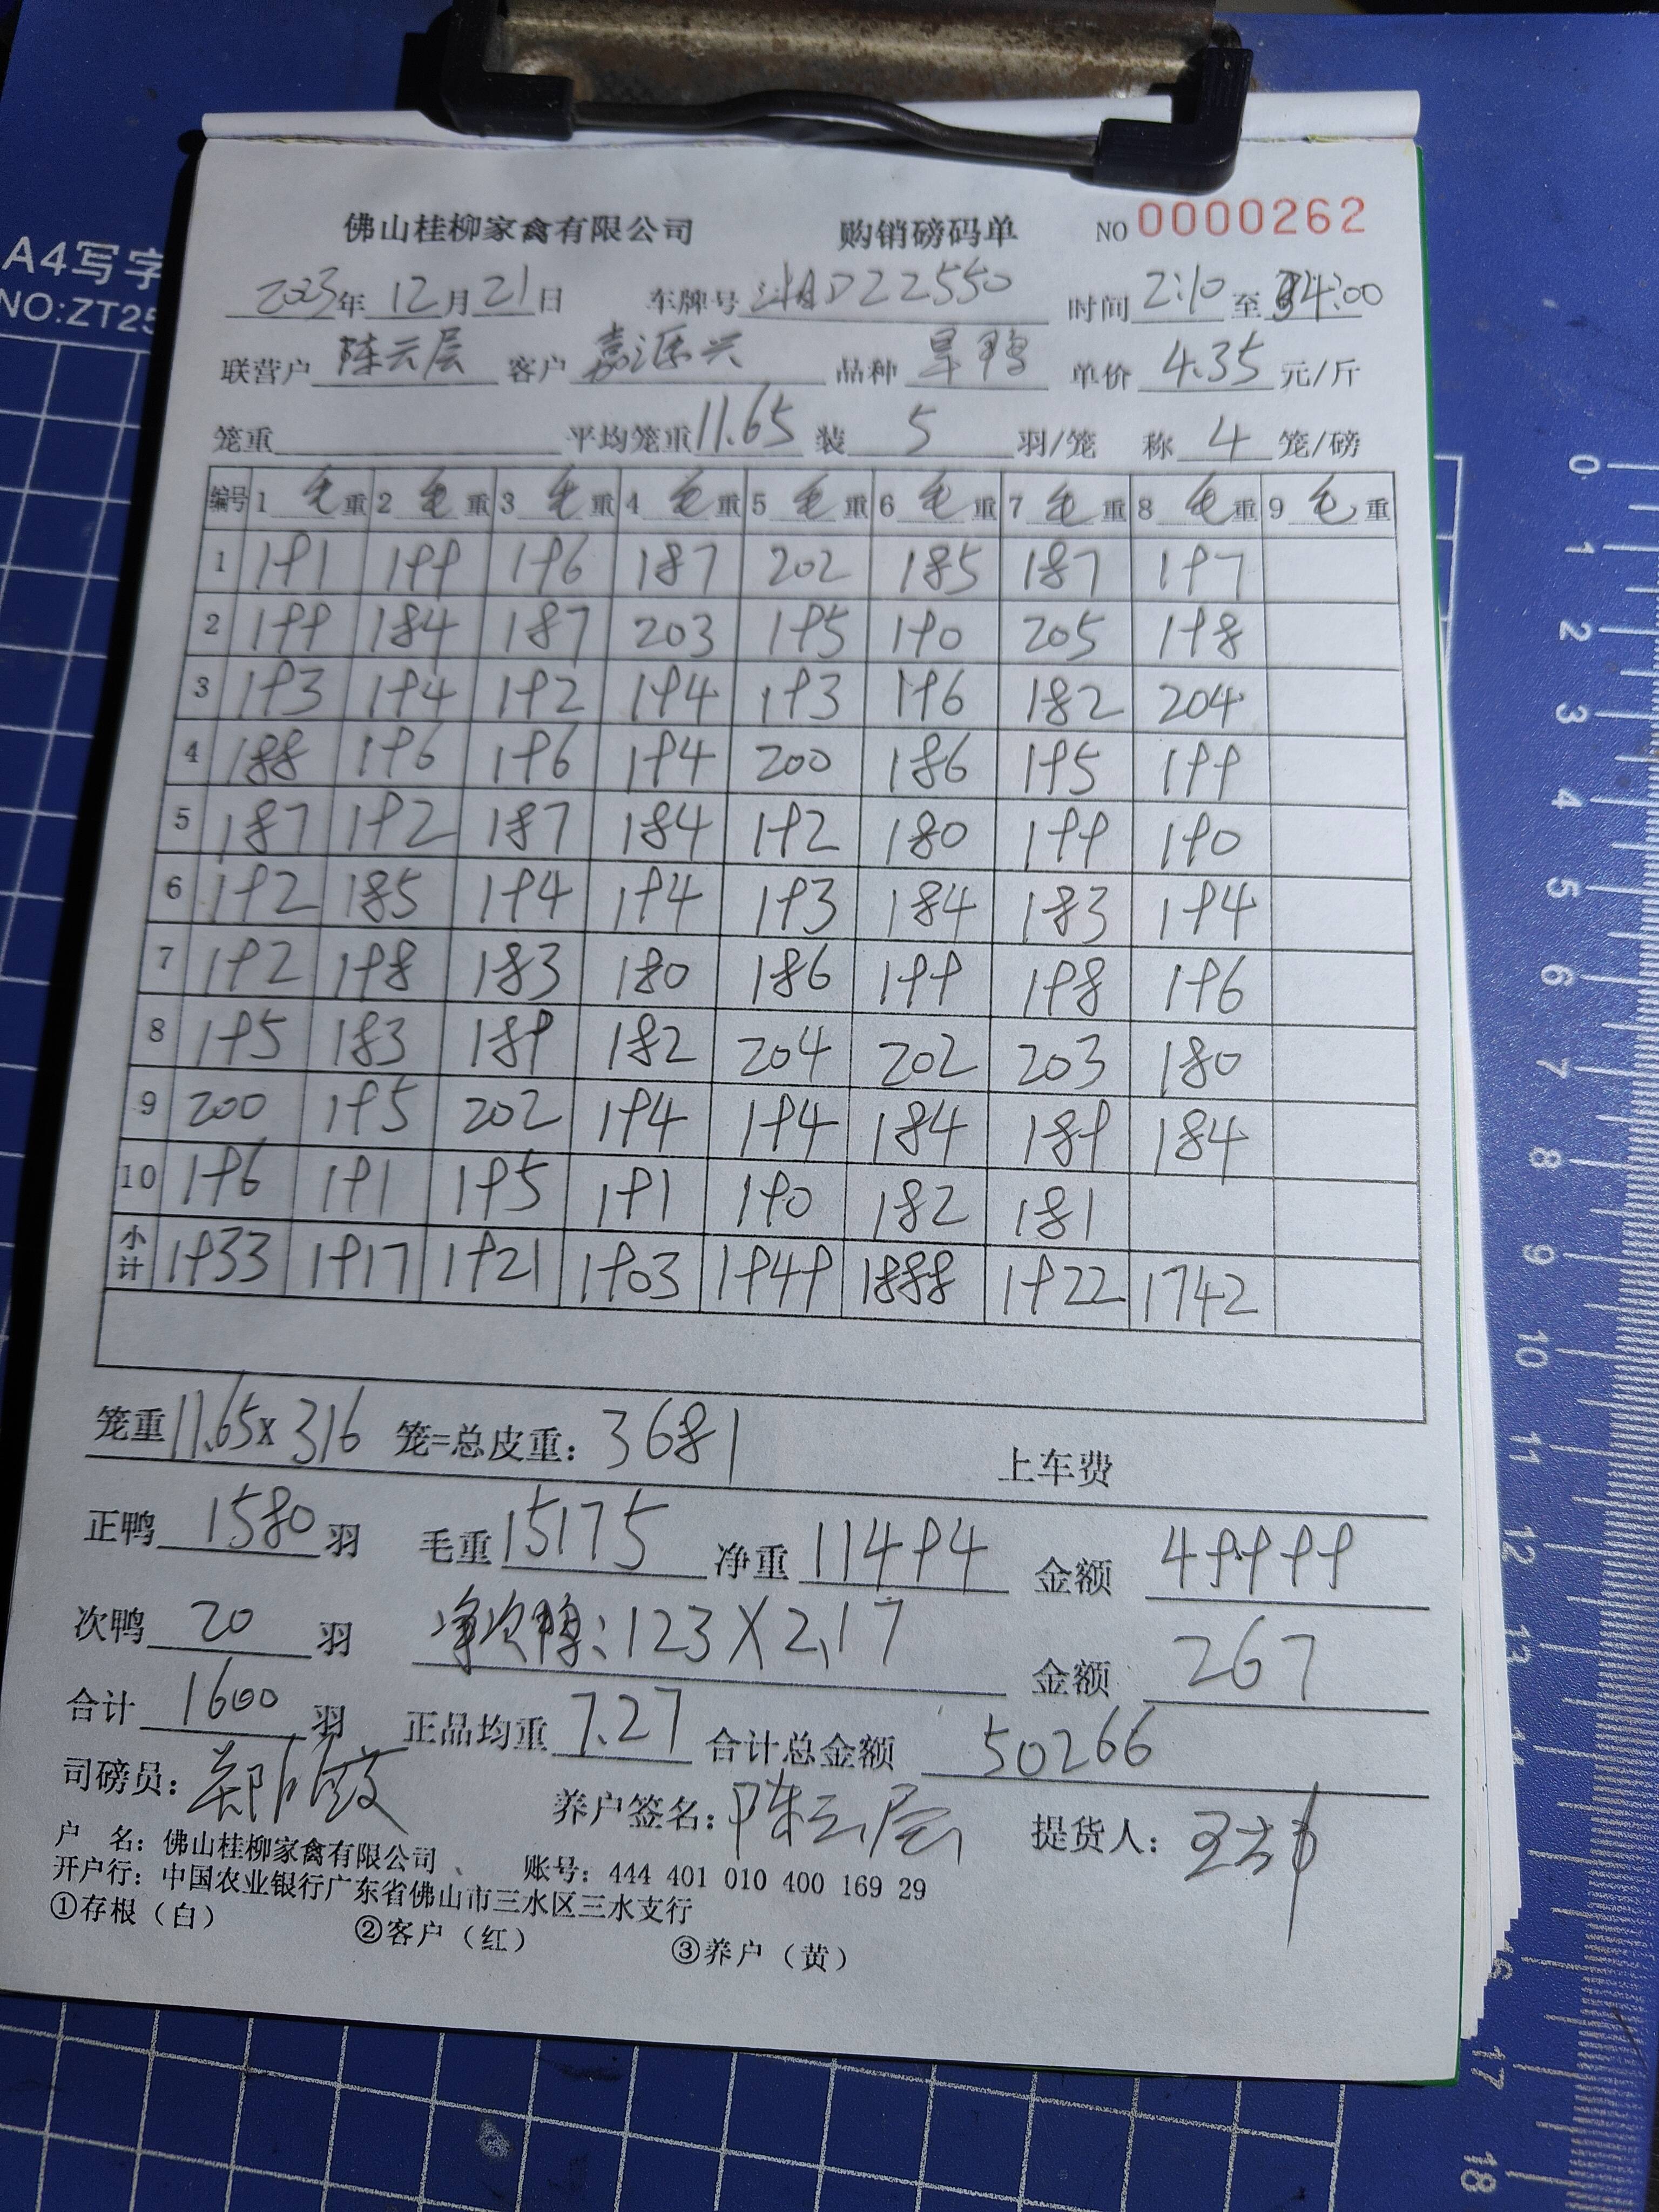 佛山桂柳家禽有限公司 购销磅码单 NO 0000262
2023年 12月 21日 车牌号 D22550 时间 2:10 至 4:00
联营户 陈云层 客户 嘉源兴 品种 旱鸭 单价 4.35 元/斤
笼重 平均笼重 11.65 装 5 羽/笼 称 4 笼/磅
编号 1 毛重 2 毛重 3 毛重 4 毛重 5 毛重 6 毛重 7 毛重 8 毛重 9 毛重
1 191 199 196 187 202 185 187 197
2 199 184 187 203 195 190 205 198
3 193 194 192 194 193 196 182 204
4 188 196 196 194 200 186 195 199
5 187 192 187 184 192 180 199 190
6 192 185 194 194 193 184 183 194
7 192 198 183 180 186 199 198 196
8 195 183 189 182 204 202 203 180
9 200 195 202 194 194 184 189 184
10 196 191 195 191 190 182 181
小计 1933 1917 1921 1903 1949 1888 1922 1742
笼重 11.65 x 316 笼=总皮重: 3681 上车费
正鸭 1580 羽 毛重 15175 净重 11494 金额 49999
次鸭 20 羽 净次鸭: 123 X 2.17 金额 267
合计 1600 羽 正品均重 7.27 合计总金额 50266
司磅员: 养户签名: 陈云层 提货人:
户 名: 佛山桂柳家禽有限公司 、 账号: 444 401 010 400 169 29
开户行: 中国农业银行广东省佛山市三水区三水支行
①存根（白） ②客户（红） ③养户（黄）
A4写字
NO:ZT25
0
1
2
3
4
5
6
7
8
9
10
11
12
13
14
16
17
18